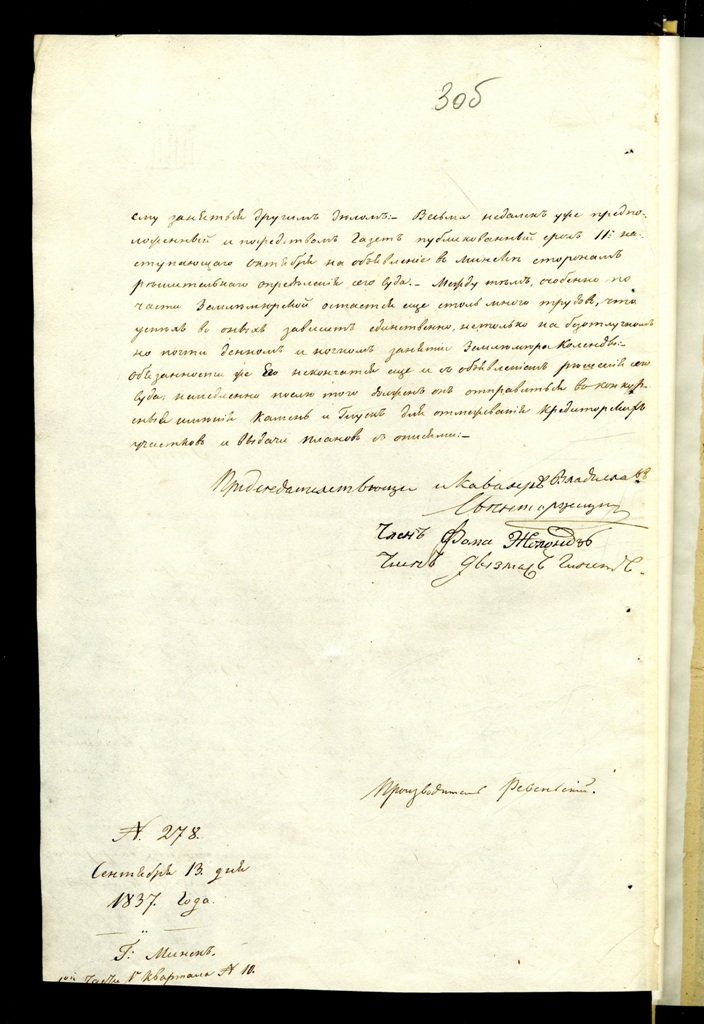 305
ему занятья другимъ дѣломъ:- Весьма недалекъ уже предпо-
ложенный и посредствомъ Газетъ публикованный срокъ 11: на-
ступающаго Октября на объявленіе въ Минскѣ сторонамъ
рѣшительнаго опредѣленія сего Суда.- Между тѣмъ, особенно по
части Землемѣрской остается еще столь много трудовъ, что
успѣхъ въ оныхъ зависитъ единственно, нетолько на безотлучномъ
но почти денномъ и ночномъ занятіи Землемѣра Календы:-
Обязанности же Его некончатся еще и съ объявленіемъ рѣшенія сего
Суда; немедленно послѣ того долженъ онъ отправиться въ конкур-
сныя имѣнія Камень и Глускъ для отмежеванія Кредиторскихъ
участковъ и выдачи плановъ съ описями:-
Предсѣдательствующій и Кавалеръ Владиславъ
Членъ Фома
Членъ
Производитель
N. 278.
Сентября 13. дня
1837. Года.
Г: Минскъ.
Части 1го Квартала N 10.